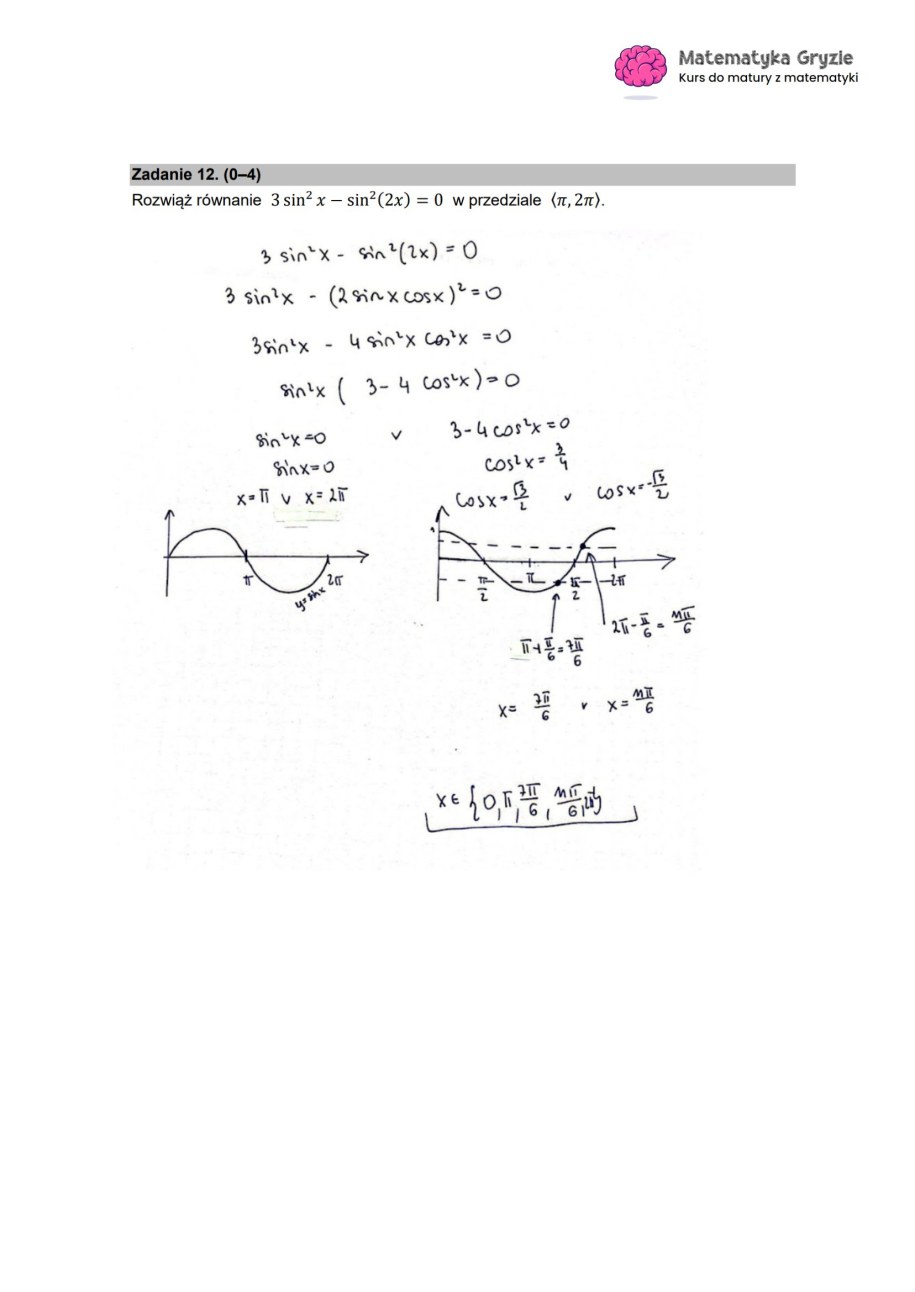 Matematyka Gryzie
Kurs do matury z matematyki
Zadanie 12. (0–4)
Rozwiąż równanie 3 sin² x − sin²(2x) = 0 w przedziale ⟨π, 2π⟩.
3 sin²x - sin²(2x) = 0
3 sin²x - (2 sinx cosx)² = 0
3sin²x - 4 sin²x cos²x = 0
sin²x ( 3-4 cos²x) = 0
sin²x=0 v 3-4cos²x=0
sinx=0 cos²x = 3/4
x=π v x=2π cosx=√3/2 v cosx=-√3/2
π 2π
y=sinx
1
π/2 π π/2 2π
π+π/6=7π/6 2π-π/6=11π/6
x= 7π/6 v x=11π/6
x∈{0,π,7π/6,11π/6,2π}